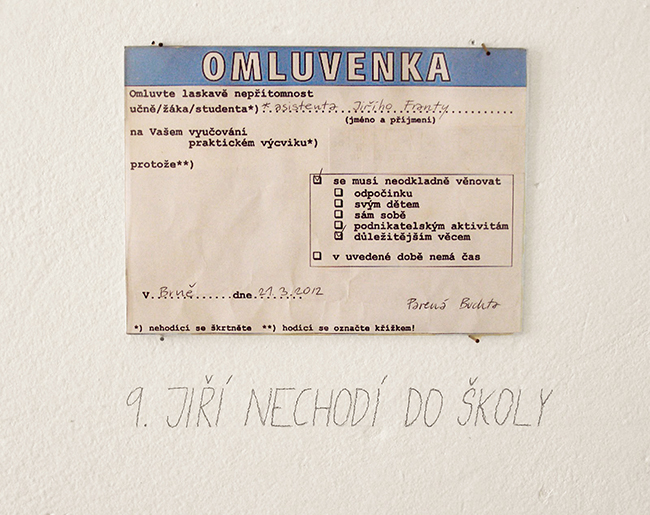 OMLUVENKA
Omluvte laskavě nepřítomnost
učně/žáka/studenta*) *asistenta Jiřího Franty
(jméno a příjmení)
na Vašem vyučování
praktickém výcviku*)
protože**)
se musí neodkladně věnovat
odpočinku
svým dětem
sám sobě
podnikatelským aktivitám
důležitějším věcem
v uvedené době nemá čas
V Brně dne 21.3.2012
Pařená Buchta
*) nehodící se škrtněte **) hodící se označte křížkem!
9. JIŘÍ NECHODÍ DO ŠKOLY